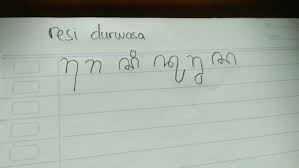 resi durwasa
ꦫꦺꦱꦶꦢꦸꦫ꧀ꦮꦱ